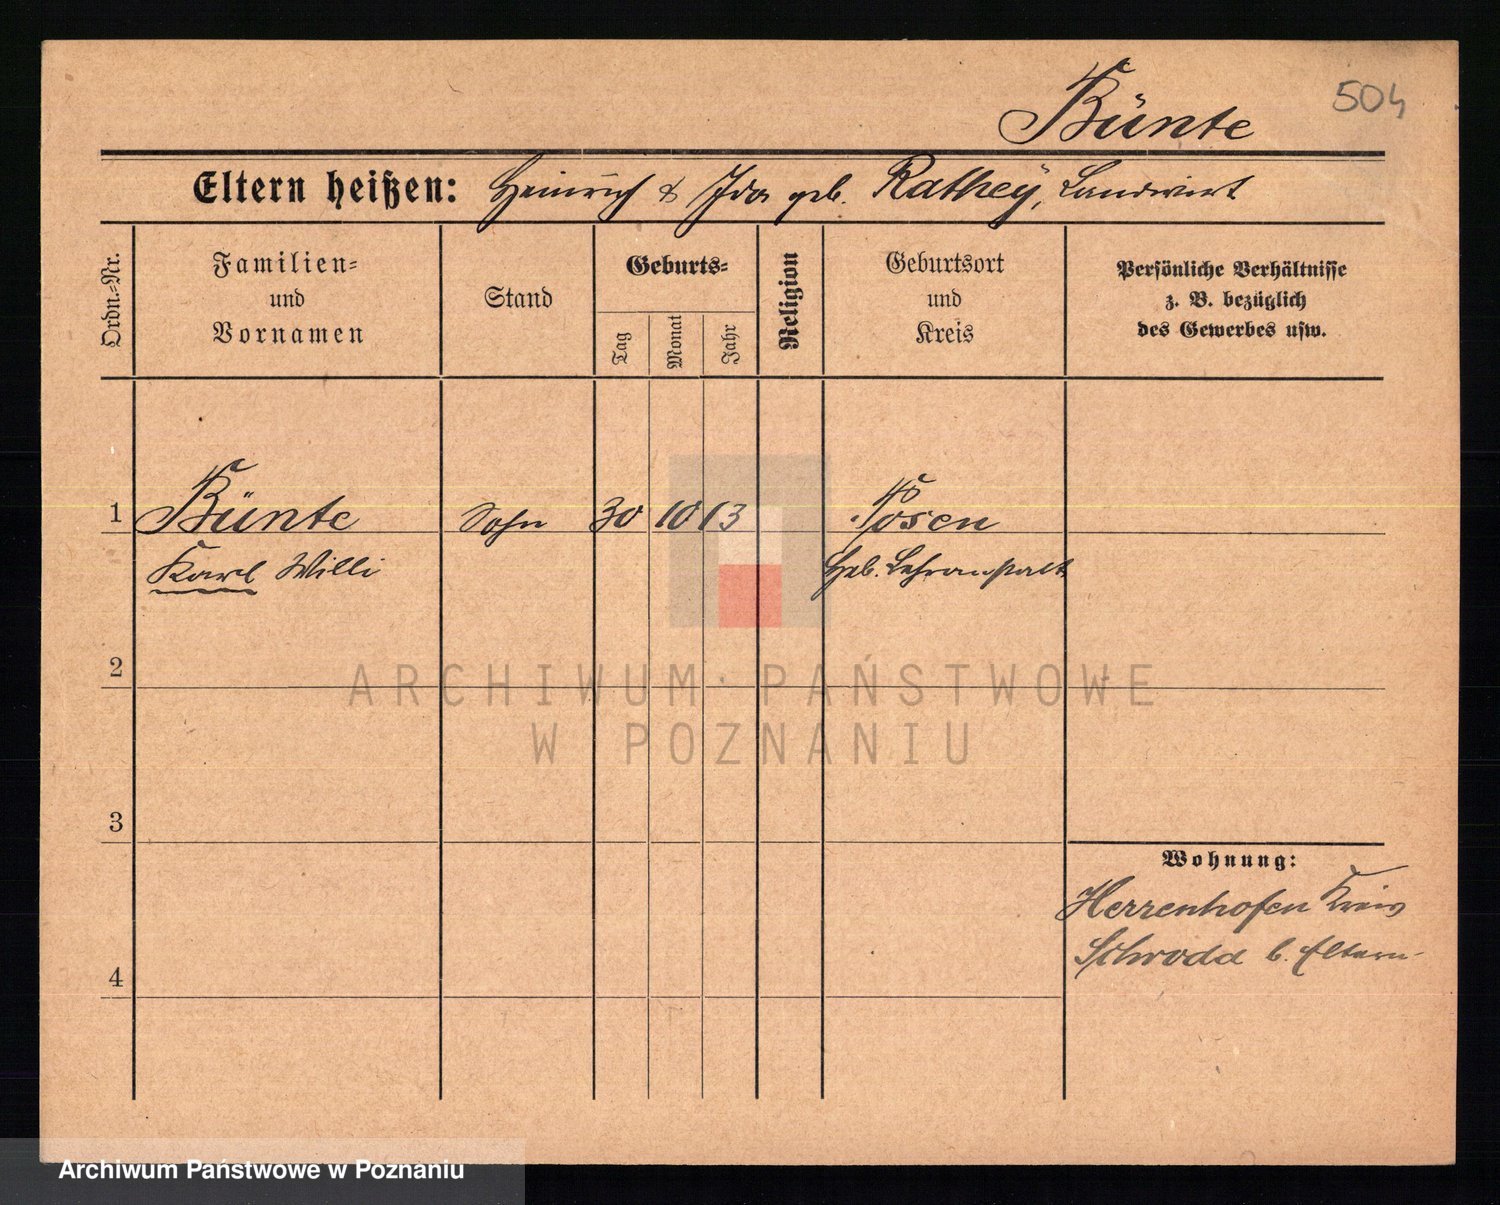 504
Bünte
Eltern heißen: Heinrich & Ida geb. Rathey, Landwirt
Ordn.=Nr.
Familien=
und
Vornamen
Stand
Geburts=
Tag
Monat
Jahr
Religion
Geburtsort
und
Kreis
Persönliche Verhältnisse
z. B. bezüglich
des Gewerbes usw.
1 Bünte Sohn 30 10 13 Posen
Karl Willi Heb. Lehranstalt
2
ARCHIWUM PAŃSTWOWE
W POZNANIU
3
Wohnung:
Herrenhofen Kreis
Schroda b. Eltern.
4
Archiwum Państwowe w Poznaniu